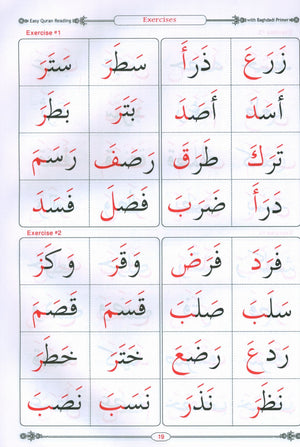 Easy Quran Reading Exercises with Baghdadi Primer
Exercise #1
زَرَعَ ذَرَأَ سَطَرَ سَتَرَ
أَسَدَ أَصَدَ بَتَرَ بَطَرَ
تَرَكَ طَرَقَ رَصَفَ رَسَمَ
دَرَأَ ضَرَبَ فَصَلَ فَسَدَ
Exercise #2
فَرَدَ فَرَضَ وَقَرَ وَكَزَ
سَلَبَ صَلَبَ قَسَمَ قَصَمَ
رَدَعَ رَضَعَ خَتَرَ خَطَرَ
نَظَرَ نَذَرَ نَسَبَ نَصَبَ
19